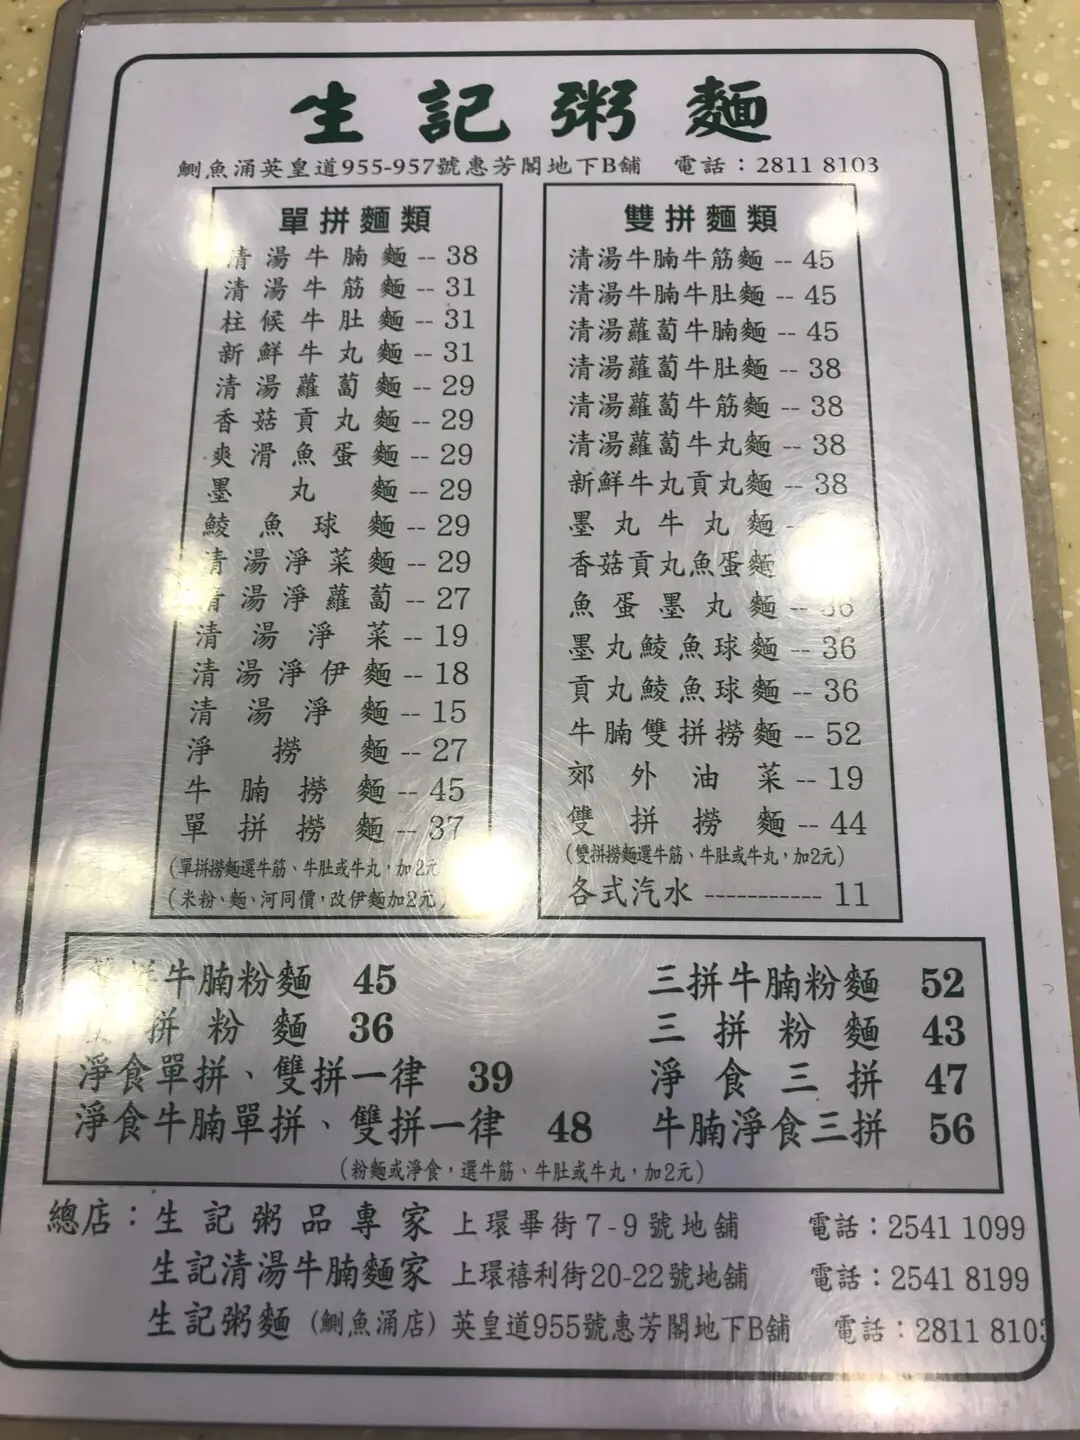 生記粥麵
鰂魚涌英皇道955-957號惠芳閣地下B舖 電話：2811 8103
單拼麵類
清湯牛腩麵 -- 38
清湯牛筋麵 -- 31
柱候牛肚麵 -- 31
新鮮牛丸麵 -- 31
清湯蘿蔔麵 -- 29
香菇貢丸麵 -- 29
爽滑魚蛋麵 -- 29
墨丸麵 -- 29
鯪魚球麵 -- 29
清湯淨菜麵 -- 29
清湯淨蘿蔔 -- 27
清湯淨菜 -- 19
清湯淨伊麵 -- 18
清湯淨麵 -- 15
淨撈麵 -- 27
牛腩撈麵 -- 45
單拼撈麵 -- 37
(單拼撈麵選牛筋、牛肚或牛丸，加2元
(米粉、麵、河同價，改伊麵加2元)
雙拼麵類
清湯牛腩牛筋麵 -- 45
清湯牛腩牛肚麵 -- 45
清湯蘿蔔牛腩麵 -- 45
清湯蘿蔔牛肚麵 -- 38
清湯蘿蔔牛筋麵 -- 38
清湯蘿蔔牛丸麵 -- 38
新鮮牛丸貢丸麵 -- 38
墨丸牛丸麵
香菇貢丸魚蛋麵
魚蛋墨丸麵 -- 36
墨丸鯪魚球麵 -- 36
貢丸鯪魚球麵 -- 36
牛腩雙拼撈麵 -- 52
郊外油菜 -- 19
雙拼撈麵 -- 44
(雙拼撈麵選牛筋、牛肚或牛丸，加2元)
各式汽水 ------------ 11
拼牛腩粉麵 45
拼粉麵 36
淨食單拼、雙拼一律 39
淨食牛腩單拼、雙拼一律 48
三拼牛腩粉麵 52
三拼粉麵 43
淨食三拼 47
牛腩淨食三拼 56
(粉麵或淨食，選牛筋、牛肚或牛丸，加2元)
總店：生記粥品專家 上環畢街7-9號地舖 電話：2541 1099
生記清湯牛腩麵家 上環禧利街20-22號地舖 電話：2541 8199
生記粥麵 (鰂魚涌店) 英皇道955號惠芳閣地下B舖 電話：2811 8103